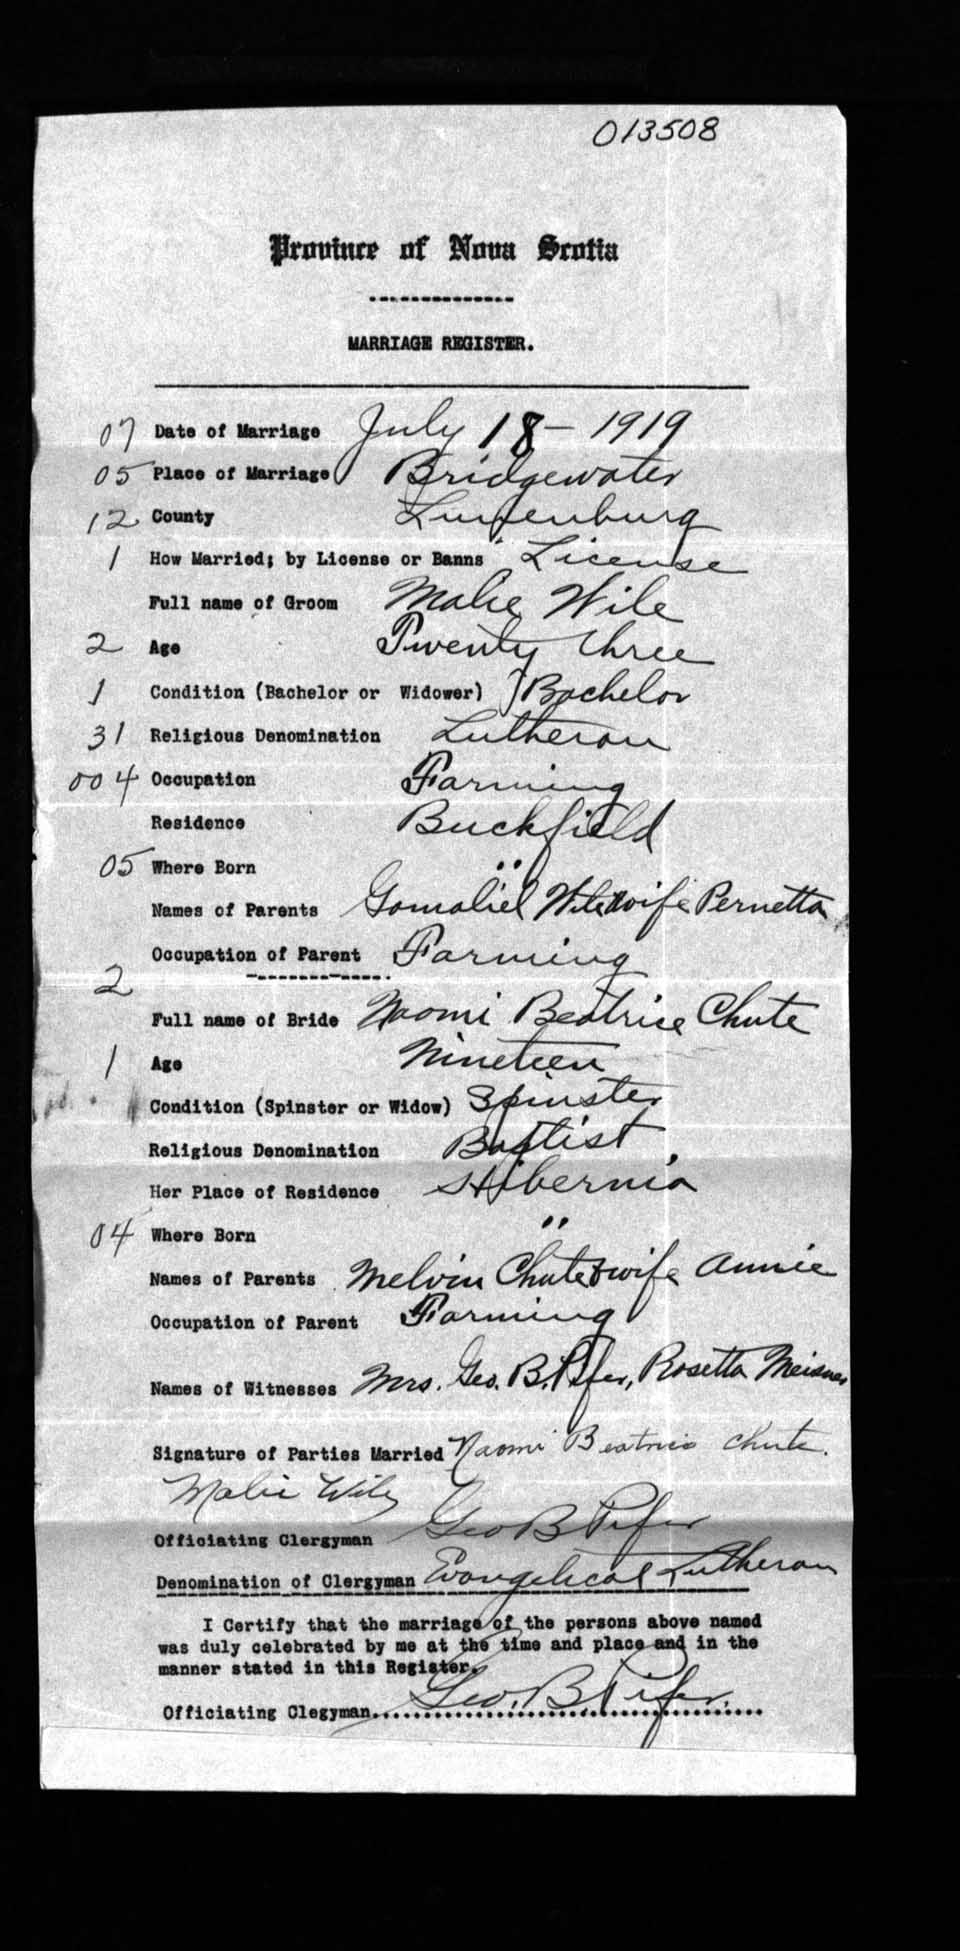 013508
Province of Nova Scotia
MARRIAGE REGISTER.
07 Date of Marriage July 18 - 1919
05 Place of Marriage Bridgewater
12 County Lunenburg
1 How Married; by License or Banns License
Full name of Groom Malie Wile
2 Age Twenty three
1 Condition (Bachelor or Widower) Bachelor
31 Religious Denomination Lutheran
004 Occupation Farming
Residence Buckfield
05 Where Born "
Names of Parents Gamaliel Wile & wife Pernetta
Occupation of Parent Farming
2
Full name of Bride Naomi Beatrice Chute
1 Age Nineteen
Condition (Spinster or Widow) Spinster
Religious Denomination Baptist
Her Place of Residence Hibernia
04 Where Born "
Names of Parents Melvin Chute & wife Annie
Occupation of Parent Farming
Names of Witnesses Mrs. Geo. B. Pifer, Rosetta Meisner
Signature of Parties Married Naomi Beatrice Chute.
Malie Wile
Officiating Clergyman Geo B Pifer
Denomination of Clergyman Evangelical Lutheran
I Certify that the marriage of the persons above named
was duly celebrated by me at the time and place and in the
manner stated in this Register.
Officiating Clegyman Geo. B Pifer.